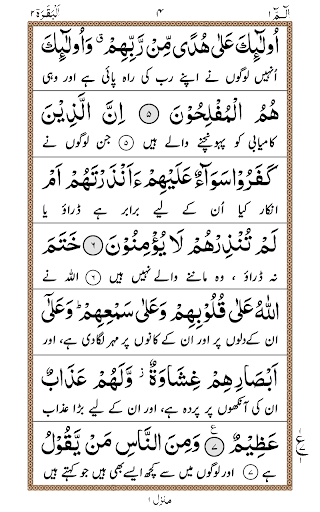 الٓمّٓ ۱ ۴ اَلْبَقَرَة ۲
اُولٰٓئِكَ عَلٰى هُدًى مِّنْ رَّبِّهِمْ ۗ وَاُولٰٓئِكَ
اُنہیں لوگوں نے اپنے رب کی راہ پائی ہے اور وہی
هُمُ الْمُفْلِحُوْنَ ۝۵ اِنَّ الَّذِيْنَ
کامیابی کو پہونچنے والے ہیں ۵ جن لوگوں نے
كَفَرُوْا سَوَآءٌ عَلَيْهِمْ ءَاَنْذَرْتَهُمْ اَمْ
انکار کیا اُن کے لیے برابر ہے ڈراؤ یا
لَمْ تُنْذِرْهُمْ لَا يُؤْمِنُوْنَ ۝۶ خَتَمَ
نہ ڈراؤ ، وہ ماننے والے نہیں ہیں ۶ اللہ نے
اللّٰهُ عَلٰى قُلُوْبِهِمْ وَعَلٰى سَمْعِهِمْ ؕ وَعَلٰٓى
ان کے دلوں پر اور ان کے کانوں پر مہر لگادی ہے، اور
اَبْصَارِهِمْ غِشَاوَةٌ ز وَّلَهُمْ عَذَابٌ
ان کی آنکھوں پر پردہ ہے، اور ان کے لیے بڑا عذاب
عَظِيْمٌ ۝۷ ع وَمِنَ النَّاسِ مَنْ يَّقُوْلُ
ہے ۷ اور لوگوں میں سے کچھ ایسے بھی ہیں جو کہتے ہیں
منزل ۱